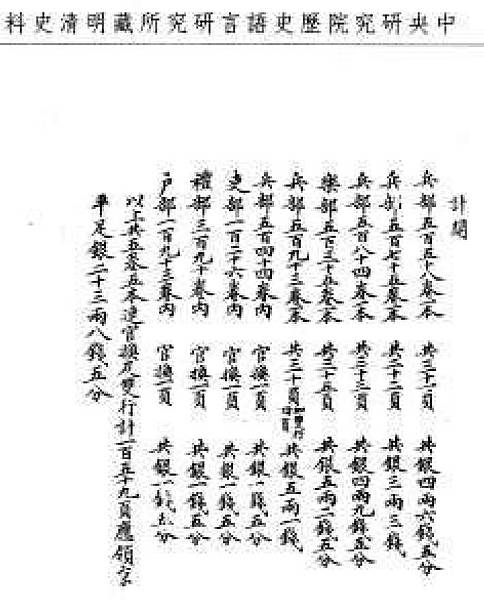 中央研究院歷史語言研究所藏明清史料
計開
兵部五百五十八卷一本 共三十一頁 共銀四兩六錢五分
兵部五百七十五卷一本 共二十二頁 共銀三兩三錢
兵部五百八十四卷一本 共三十三頁 共銀四兩九錢五分
樂部五百三十五卷一本 共三十五頁 共銀五兩二錢五分
兵部五百九十三卷一本 共三十頁 雙行四頁 共銀五兩一錢
兵部五百四十四卷內 官換一頁 共銀一錢五分
吏部一百二十六卷內 官換一頁 共銀一錢五分
禮部三百九十卷內 官換一頁 共銀一錢五分
戶部一百九十三卷內 官換一頁 共銀一錢五分
以上共五卷五本連官換及雙行計一百五十九頁應領京
平足銀二十三兩八錢五分